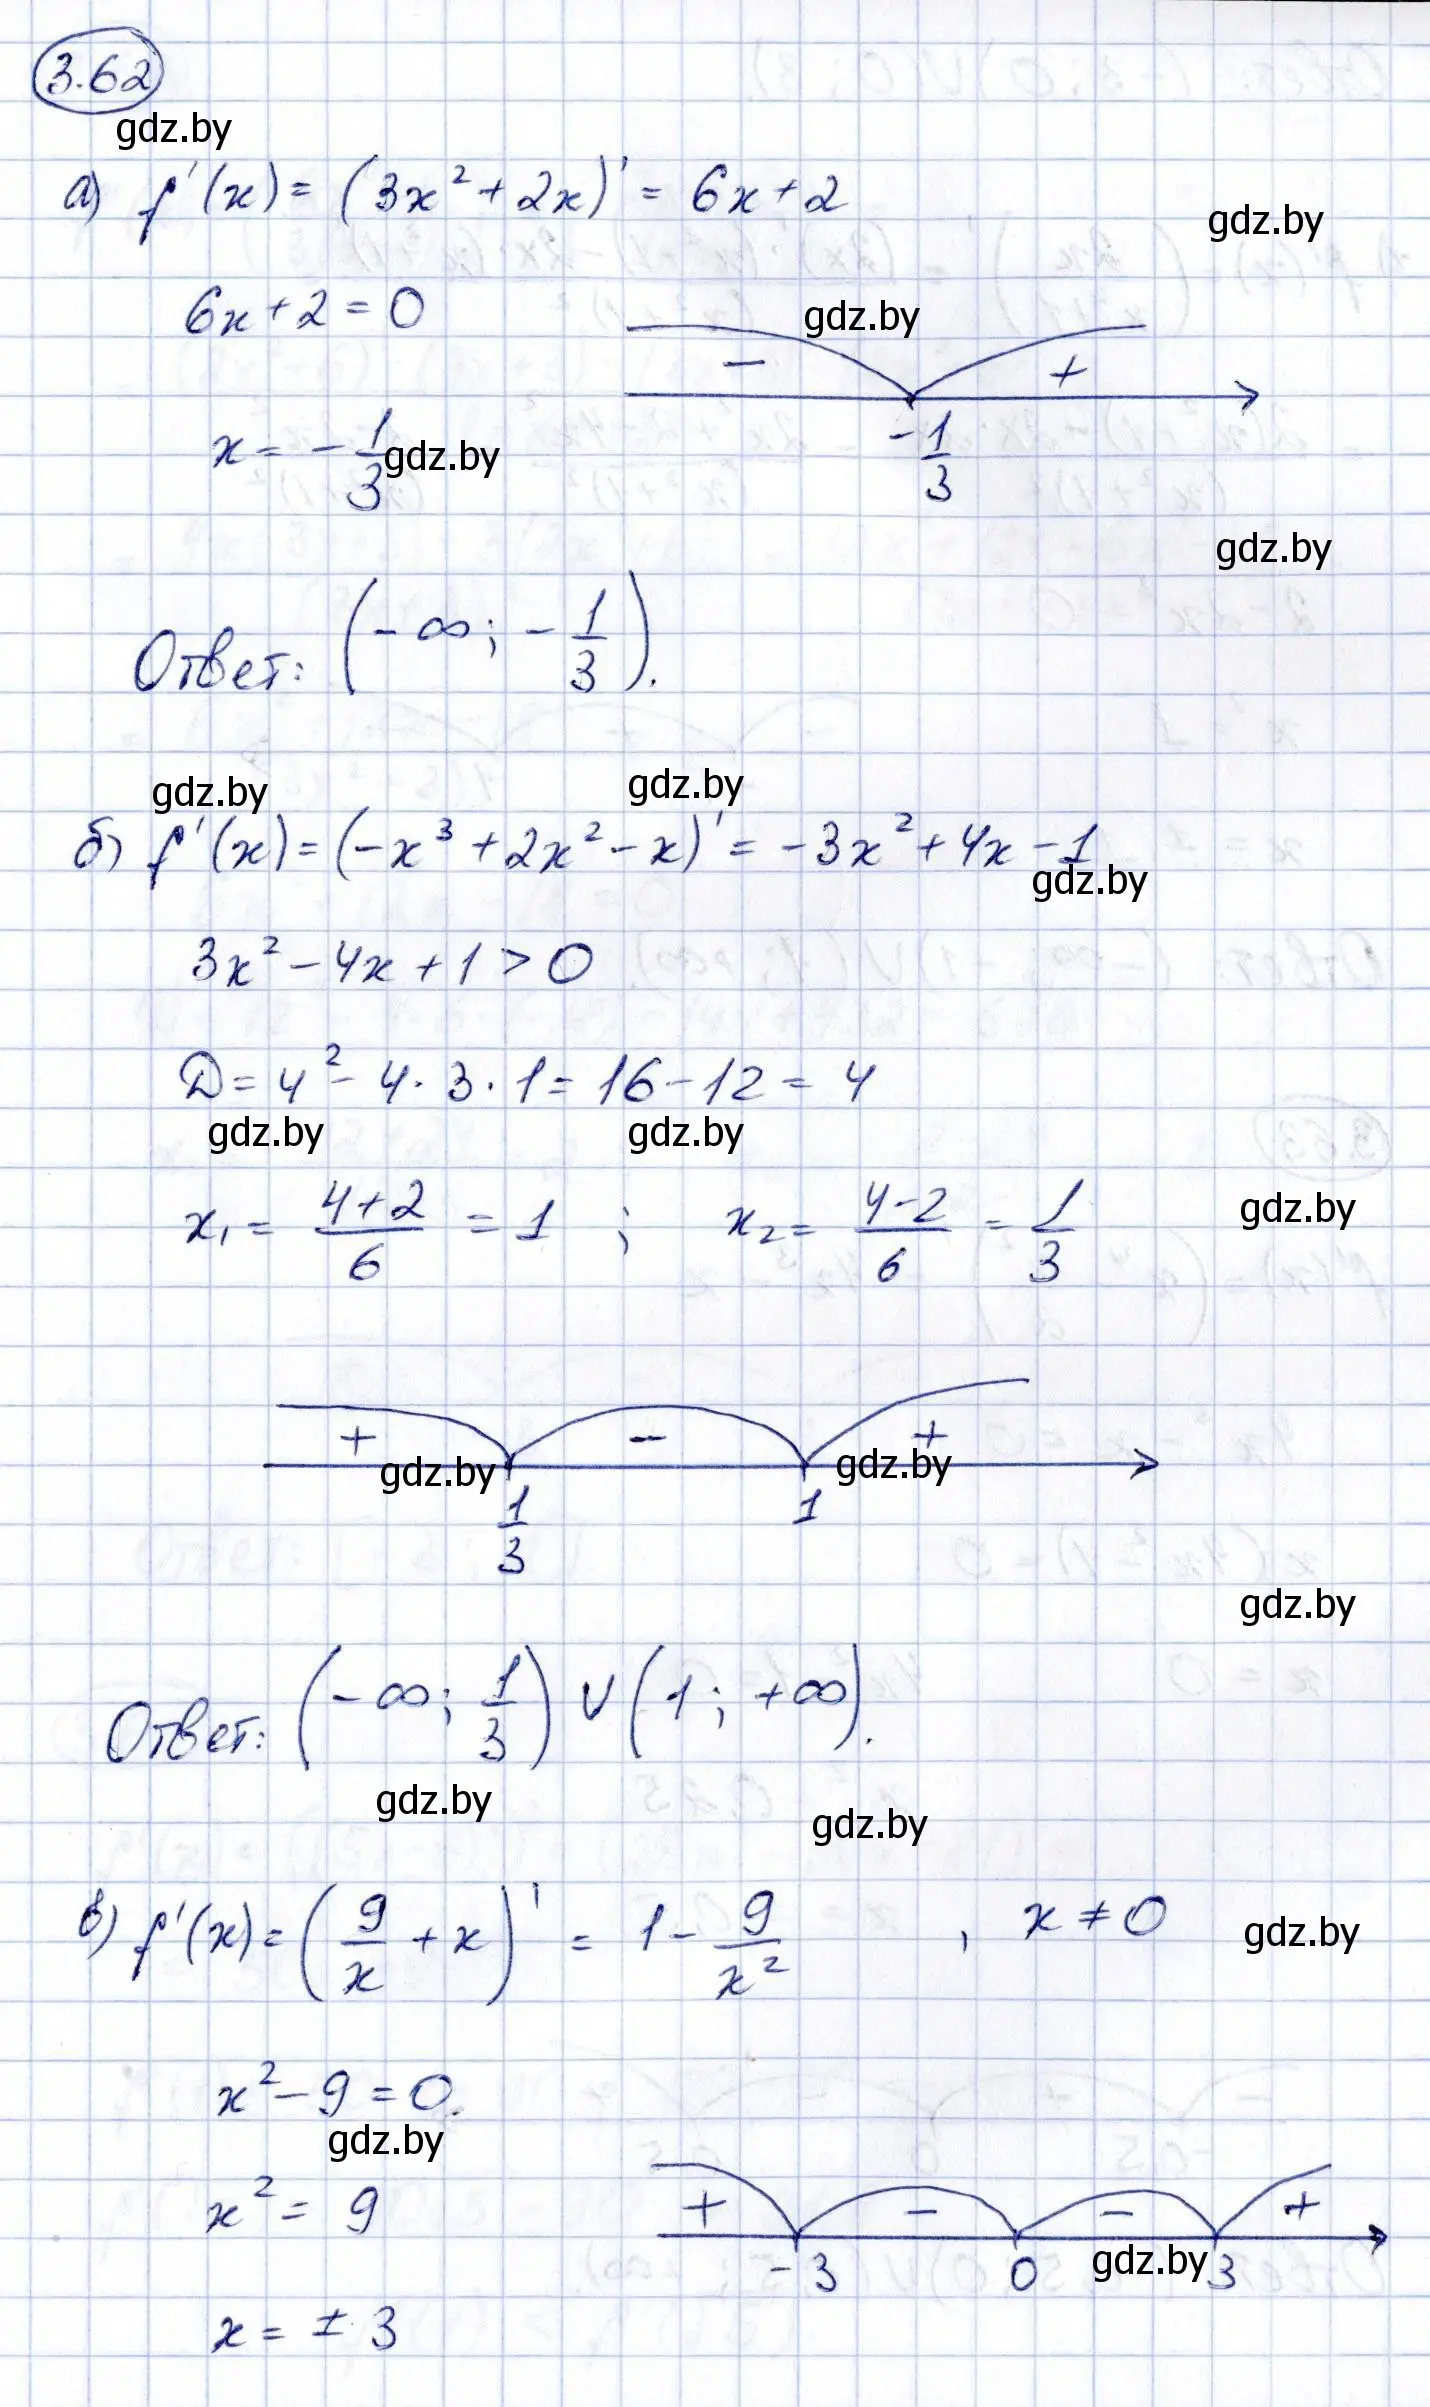 3.62
gdz.by
а) f'(x) = (3x² + 2x)' = 6x + 2
gdz.by
6x + 2 = 0
gdz.by
- +
x = -1/3
gdz.by
-1/3
gdz.by
Ответ: (-∞; -1/3).
gdz.by gdz.by
б) f'(x) = (-x³ + 2x² - x)' = -3x² + 4x - 1
gdz.by
3x² - 4x + 1 > 0
D = 4² - 4·3·1 = 16 - 12 = 4
gdz.by gdz.by
x₁ = (4+2)/6 = 1 ; x₂ = (4-2)/6 = 1/3
gdz.by
+ - +
gdz.by gdz.by
1/3 1
gdz.by
Ответ: (-∞; 1/3) ∪ (1; +∞).
gdz.by gdz.by
в) f'(x) = (9/x + x)' = 1 - 9/x² , x ≠ 0
gdz.by
x² - 9 = 0
gdz.by
x² = 9
+ - - +
-3 0 gdz.by 3
x = ± 3